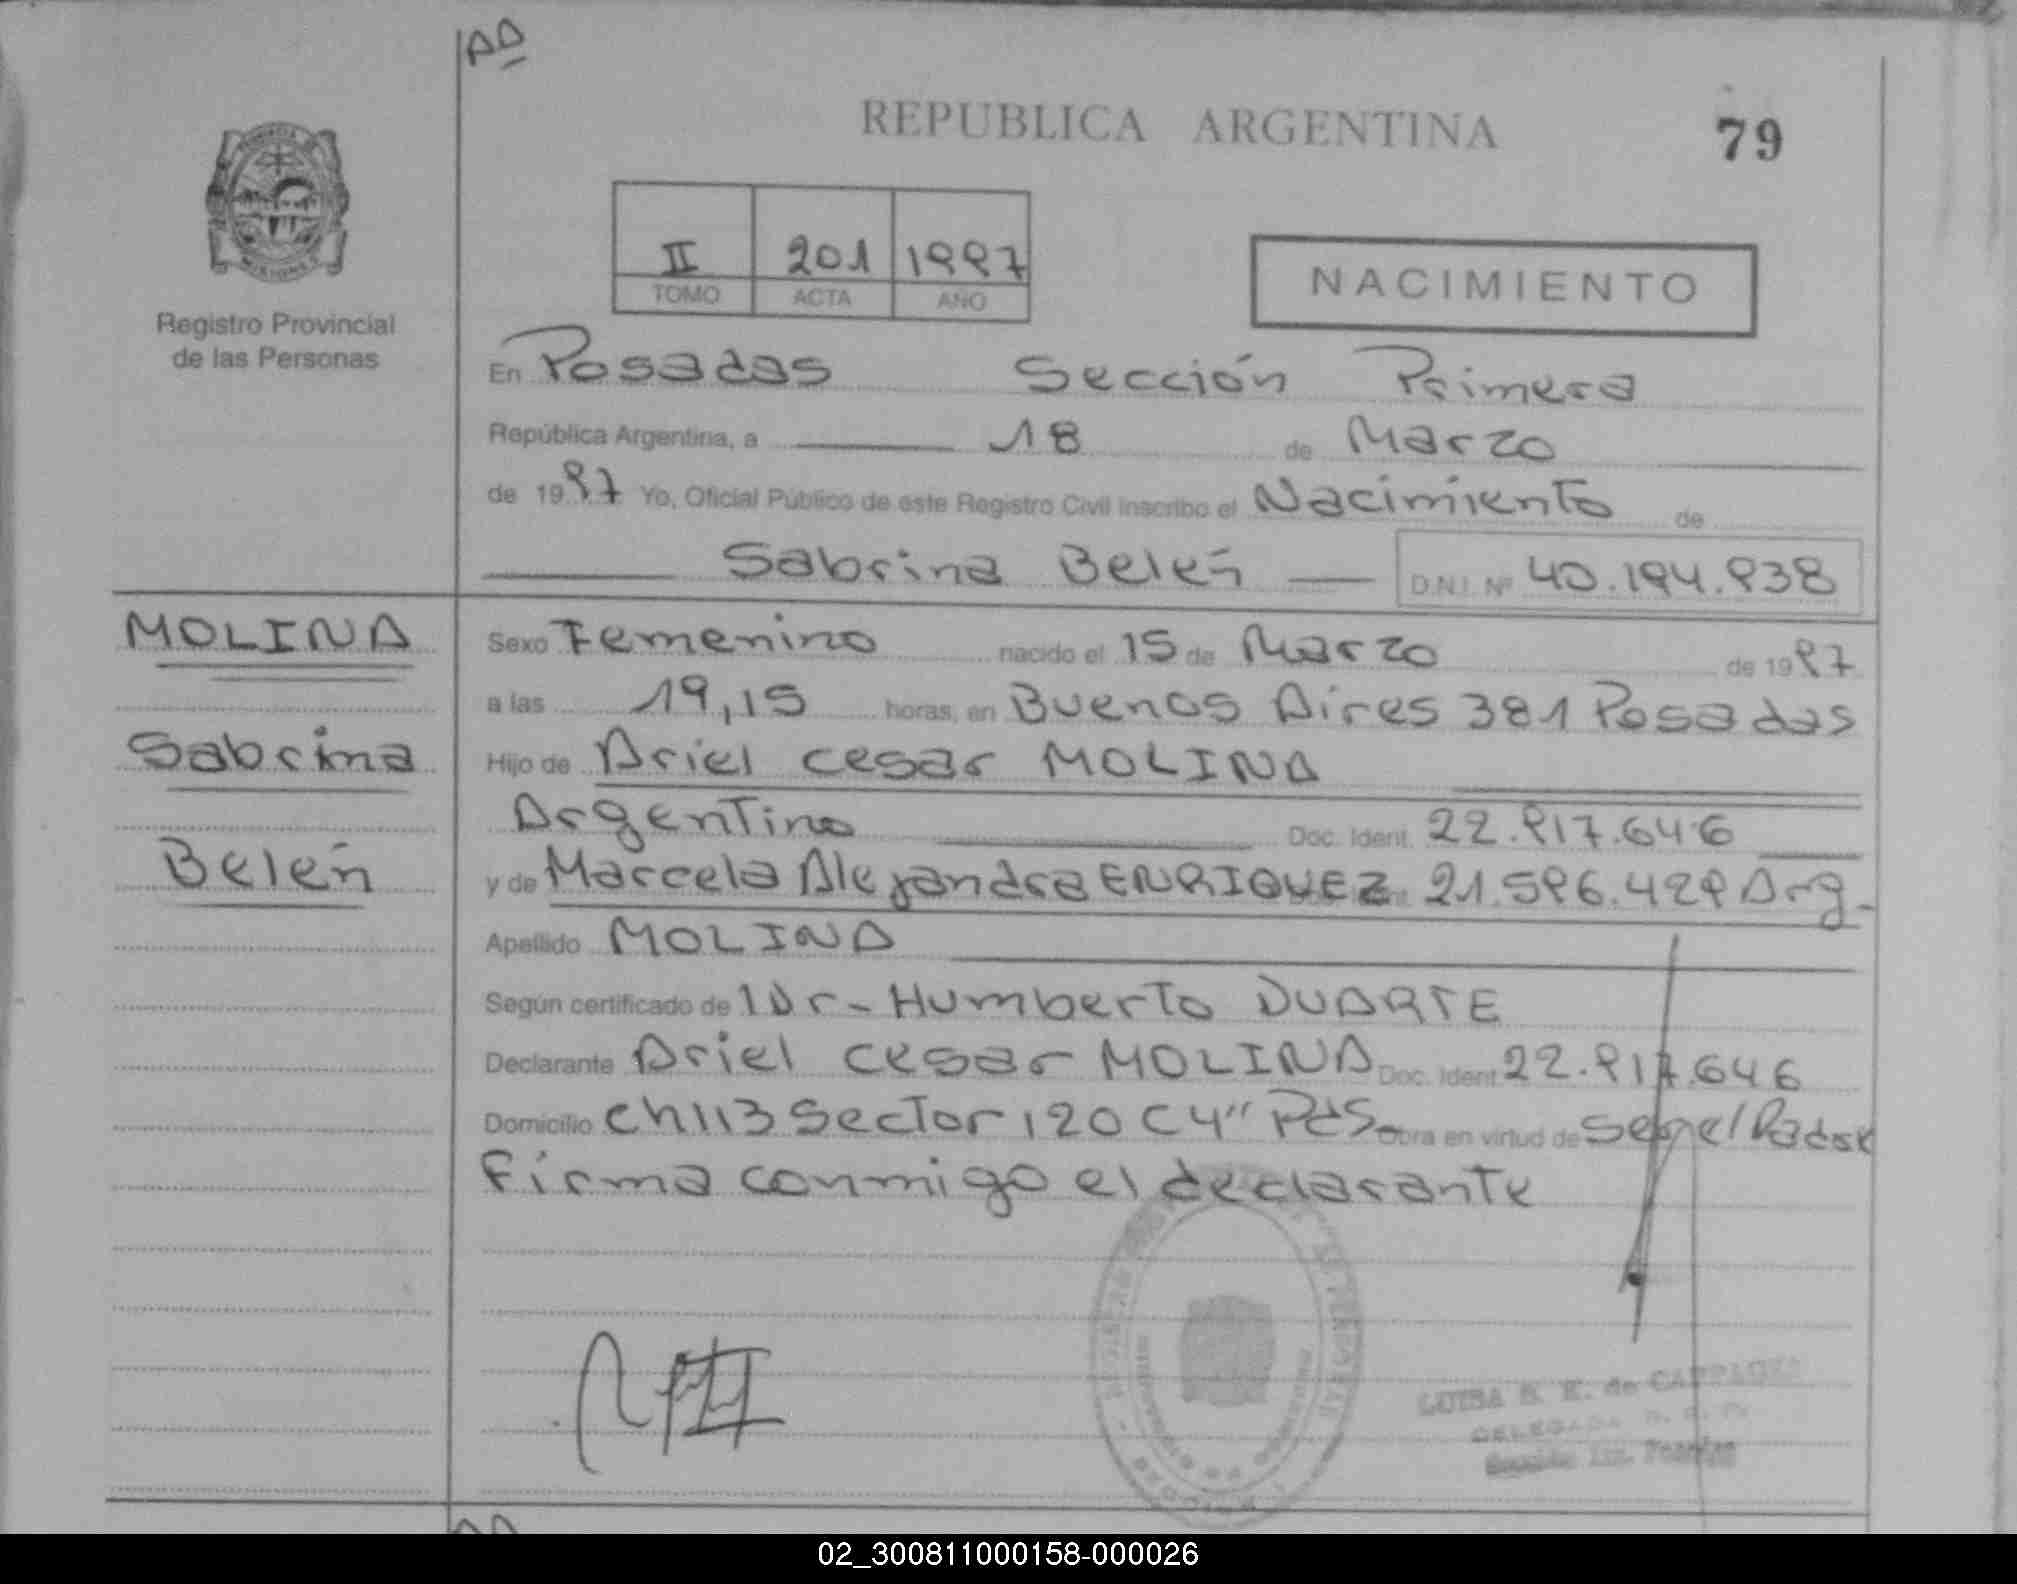 AD
REPUBLICA ARGENTINA
79
II 201 1997
TOMO ACTA AÑO
NACIMIENTO
Registro Provincial
de las Personas
En Posadas Sección Primera
República Argentina, a 18 de Marzo
de 1997 Yo, Oficial Público de este Registro Civil inscribo el Nacimiento de
Sabrina Belén D.N.I. Nº 40.194.938
MOLINA
Sabrina
Belén
Sexo Femenino nacido el 15 de Marzo de 1997
a las 19,15 horas, en Buenos Aires 381 Posadas
Hijo de Ariel Cesar MOLINA
Argentino Doc. Ident. 22.917.646
y de Marcela Alejandra ENRIQUEZ 21.596.429 Arg.
Apellido MOLINA
Según certificado de Dr- Humberto DUARTE
Declarante Ariel Cesar MOLINA Doc. Ident. 22.917.646
Domicilio Ch 113 Sector 120 C 4" Pds. Obra en virtud de ser el Padre
Firma conmigo el declarante
LUISA E. de
DELEGADA
Sección 1ra. Posadas
02_300811000158-000026